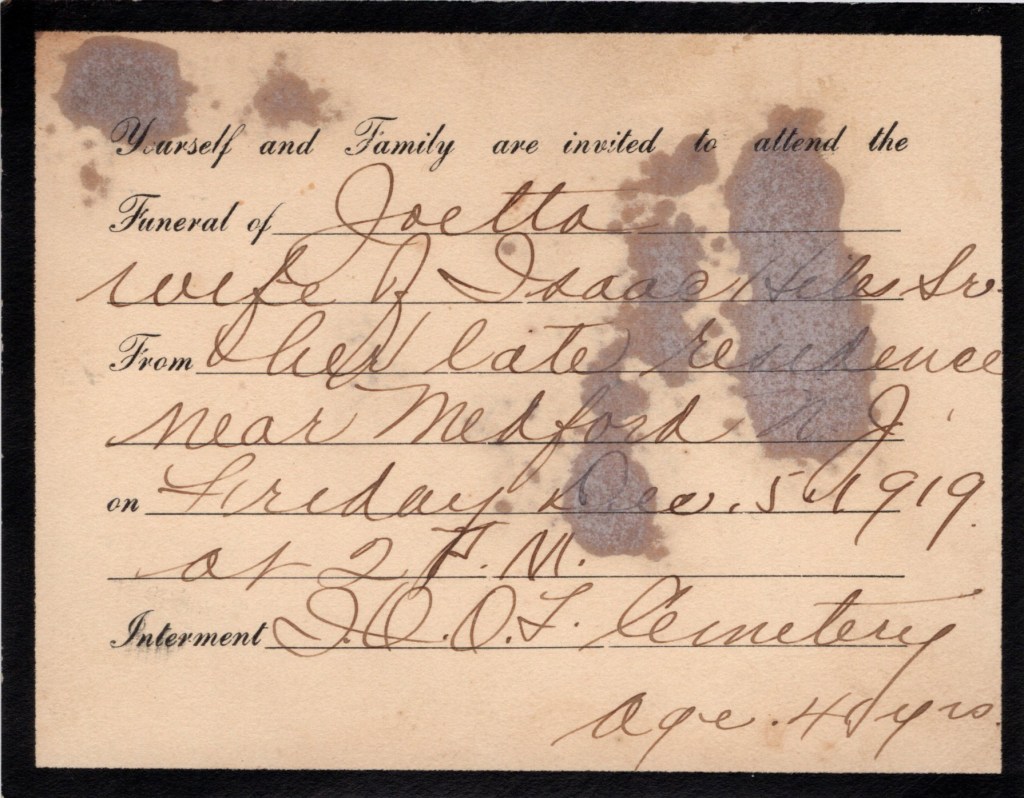 Yourself and Family are invited to attend the
Funeral of Joetta
wife of Isaac Hiles Sr.
From her late residence
near Medford N J.
on Friday Dec. 5, 1919.
at 2 P. M.
Interment I.O.O.F. Cemetery
age. yrs.